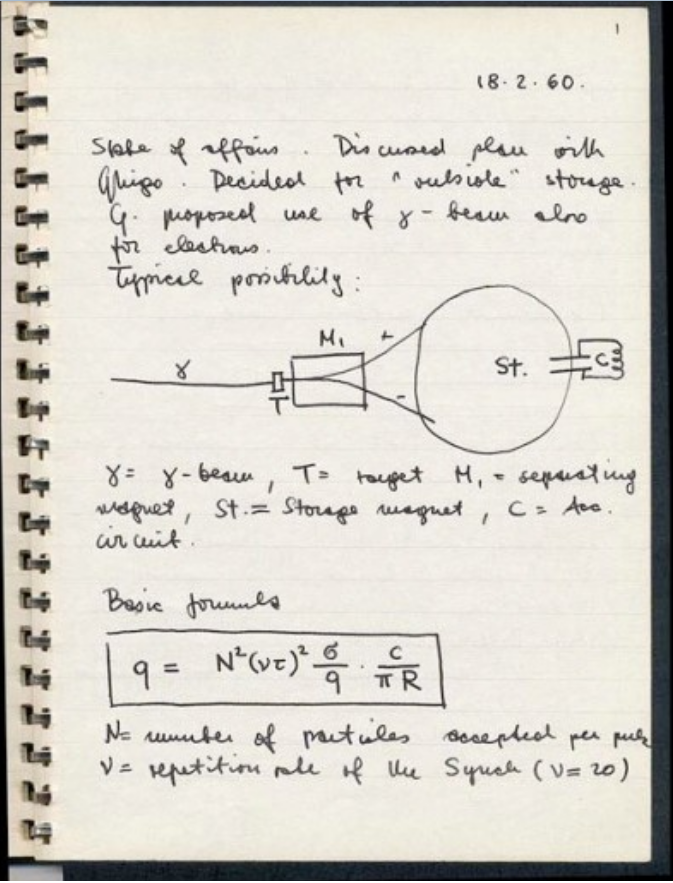 1
18.2.60.
State of affairs. Discussed plan with
Ghigo. Decided for "outside" storage.
G. proposed use of γ-beam also
for electrons.
Typical possibility:
M₁
+
γ
St.
C
T
-
γ = γ-beam, T = target M₁ = separating
magnet, St. = Storage magnet, C = Acc.
circuit.
Basic formula
q = N²(ντ)² σ/q · c/πR
N = number of particles accepted per pulse
ν = repetition rate of the Synch (ν = 20)